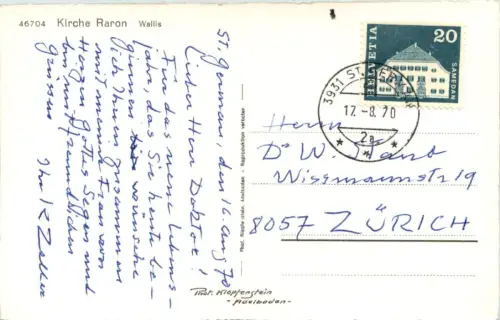 46704 Kirche Raron Wallis
St. German, den 16. Aug 70
Lieber Herr Doktor!
Für das neue Lebens-
jahr, das Sie heute be-
ginnen wünsche
ich Ihnen zusammen
mit meiner Frau von
Herzen Gottes Segen und
bin mit freundlichen
Grüssen
Ihr K. Zeller
Phot. Klopfenstein
- Adelboden -
HELVETIA
20
SAMEDAN
3931 ST. GERMAN
17.-8.70
2a
Herrn
Dr W.
Wissmannstr 19
8057 ZÜRICH